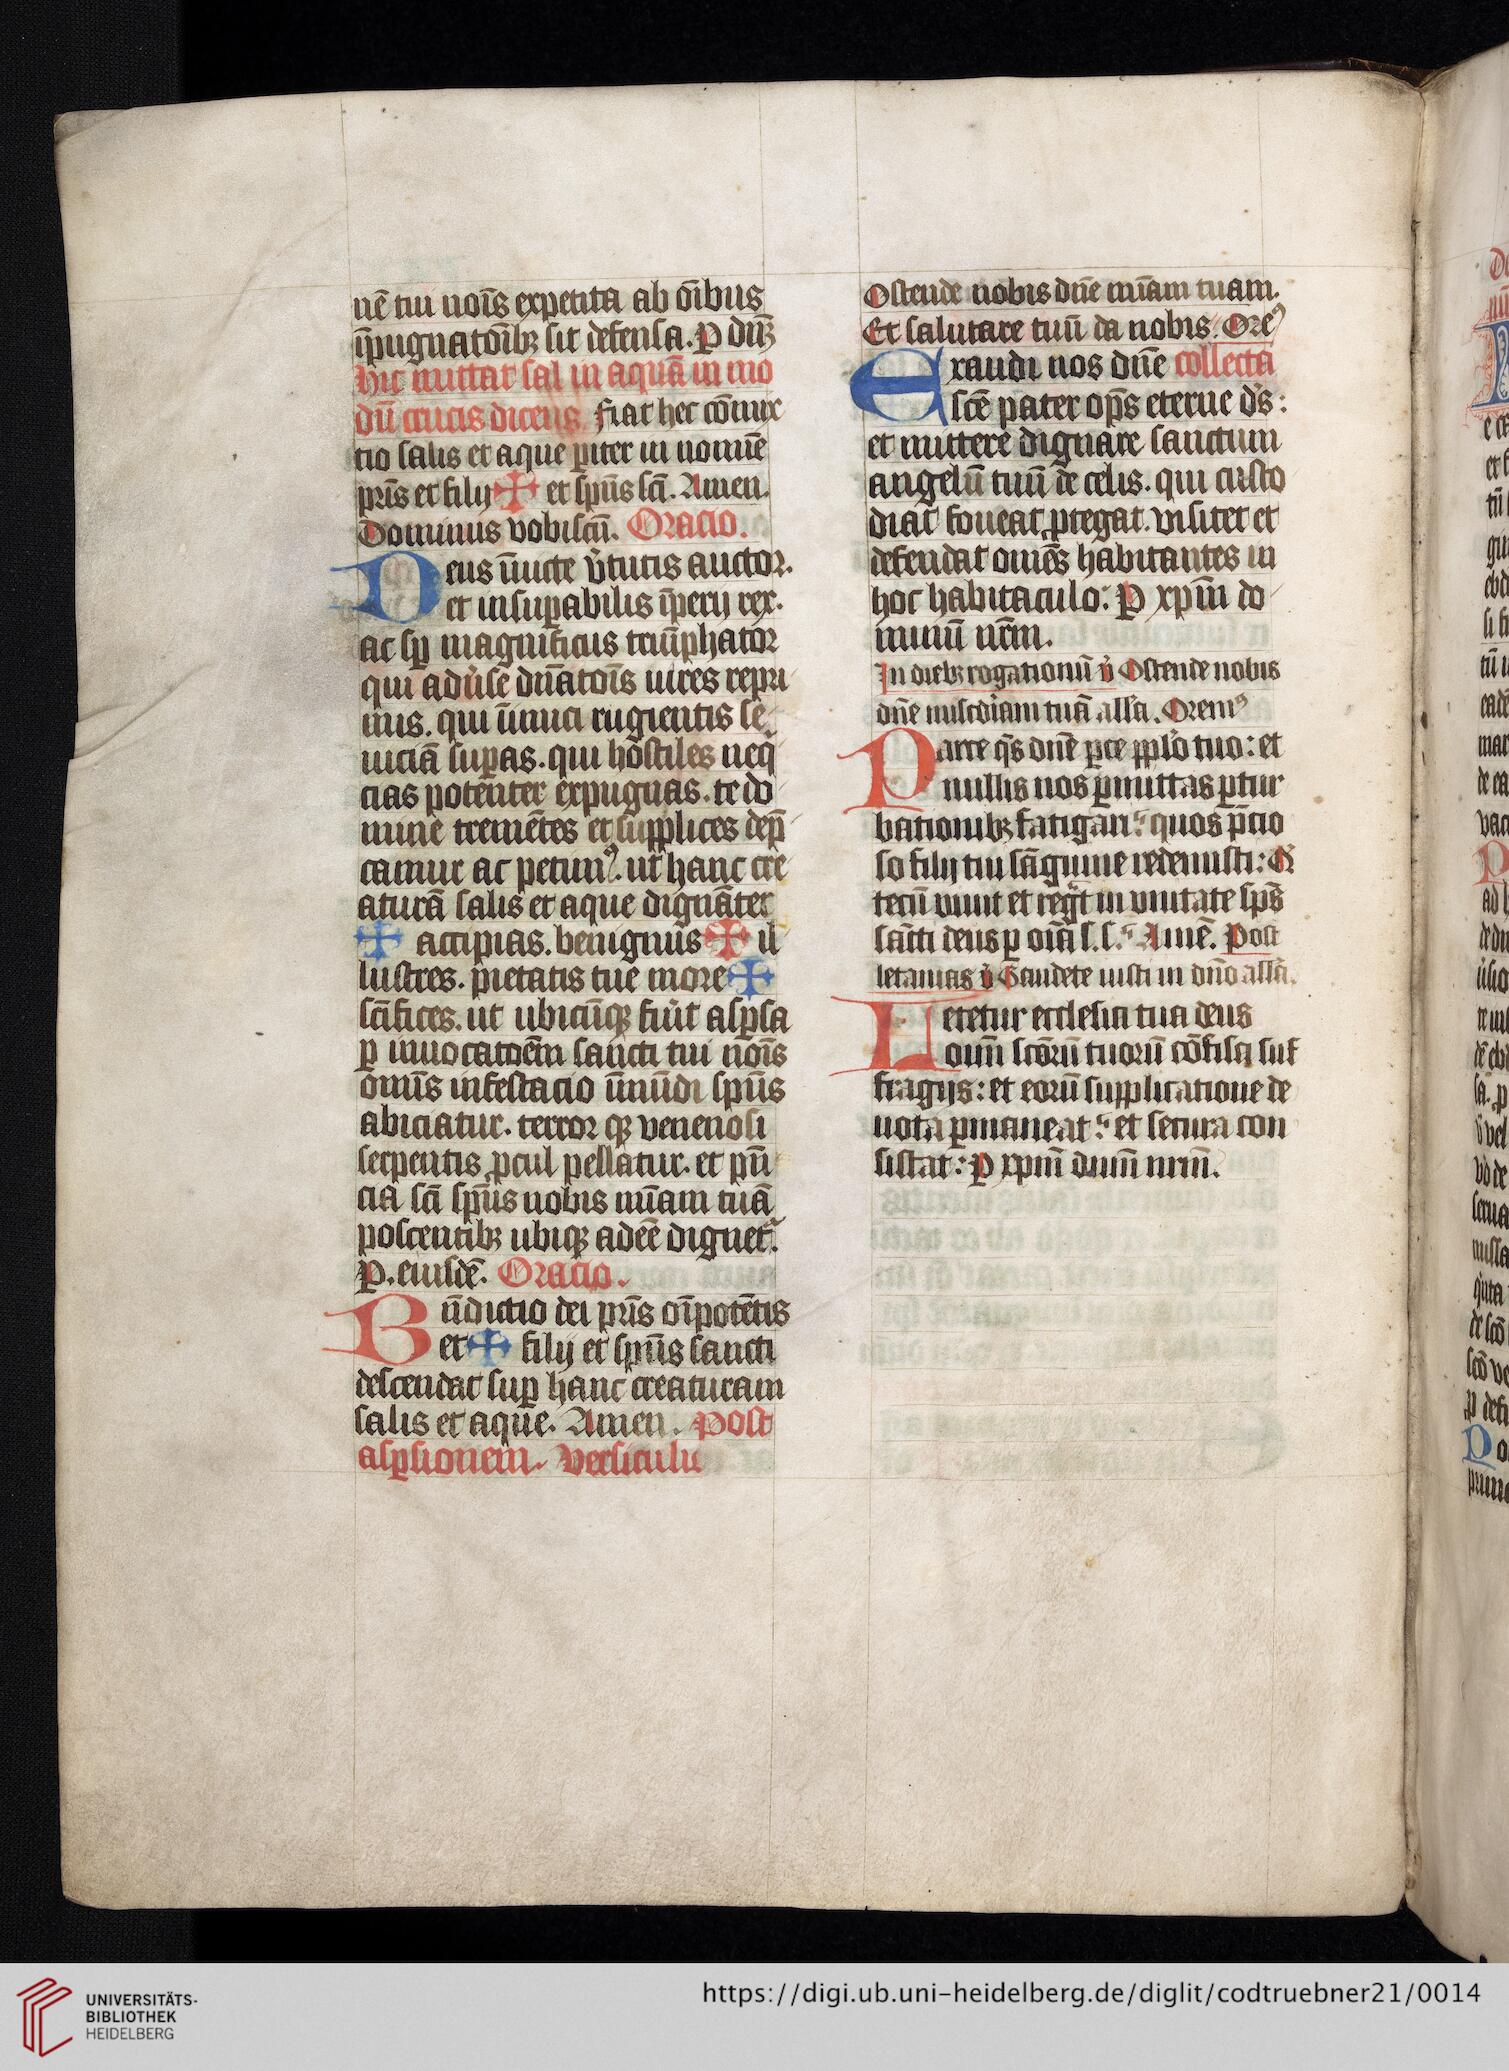 nē tui noīs expetita ab oībus
īpugnatoībꝫ sit defensa. ꝑ dn̄ꝫ
hic mittat sal in aquā in mo
dū crucis dicens. fiat hec cōmix
tio salis et aque ꝑiter in nomīe
pr̄is et filij ✠ et sp̄us sc̄i. Amen.
Dominus vobiscū. Oracio.
Deus īuicte v̓tutis auctor.
et insuꝑabilis īperij rex.
ac sꝑ magnificus triūphator
qui adu̓se dn̄atoīs uires repri
mis. qui īimici rugientis se
uiciā suꝑas. qui hostiles neq̄
cias potenter expugnas. te do
mine tremētes et supplices dep̄
camur ac petimꝰ. ut hanc cre
aturā salis et aque dignāter
✠ accipias. benignus ✠ il
lustres. pietatis tue more ✠
sc̄ifices. ut ubicūqꝫ fiu̓it asꝑsa
ꝑ inuocatōem sancti tui noīs
omīs infestacio īmūdi sp̄us
abiciatur. terror qꝫ venenosi
serpentis ꝓcul pellatur. et p̄n
cia sc̄i sp̄us nobis mīam tuā
poscentibꝫ ubiqꝫ adeē dignet᷑.
P. eiusdē. Oracio.
Bn̄dictio dei pr̄is oīpotētis
et ✠ filij et sp̄us sancti
descendat suꝑ hanc creaturam
salis et aque. Amen. Post
asꝑsionem. Versiculu
Ostende nobis dn̄e mīam tuam.
Et salutare tuū da nobis. Oreꝰ
Exaudi nos dn̄e collecta
sc̄e pater op̄s eterne d̓s:
et mittere dignare sanctum
angelū tuū de celis. qui custo
diat foueat ꝓtegat. visitet et
defendat omēs habitantes in
hoc habitaculo: P xp̄m do
minū nr̄m.
In diebꝫ rogationū v̓ Ostende nobis
dn̄e mis̄c̄diam tuā all̓a. Oremꝰ
Parce q̄s dn̄e ꝑce pplo̓ tuo: et
nullis nos ꝑmittas ꝑtur
bationibꝫ fatigari: quos p̄cio
so filij tui sāguine redemisti: Q̓
tecū viuit et regt̓ in vnitate sp̄s
sāti deus ꝑ oīa s. s. Amē. Post
letanias v̓ Gaudete iusti in dn̄o all̓a.
Letetur ecclesia tua deus
oīm sc̄orū tuorū cōfisa suf
fragijs: et eorū supplicatione de
uota ꝑmaneat: et secura con
sistat: P xp̄m dnm̄ nrm̄.
UNIVERSITÄTS-
BIBLIOTHEK
HEIDELBERG
https://digi.ub.uni-heidelberg.de/diglit/codtruebner21/0014